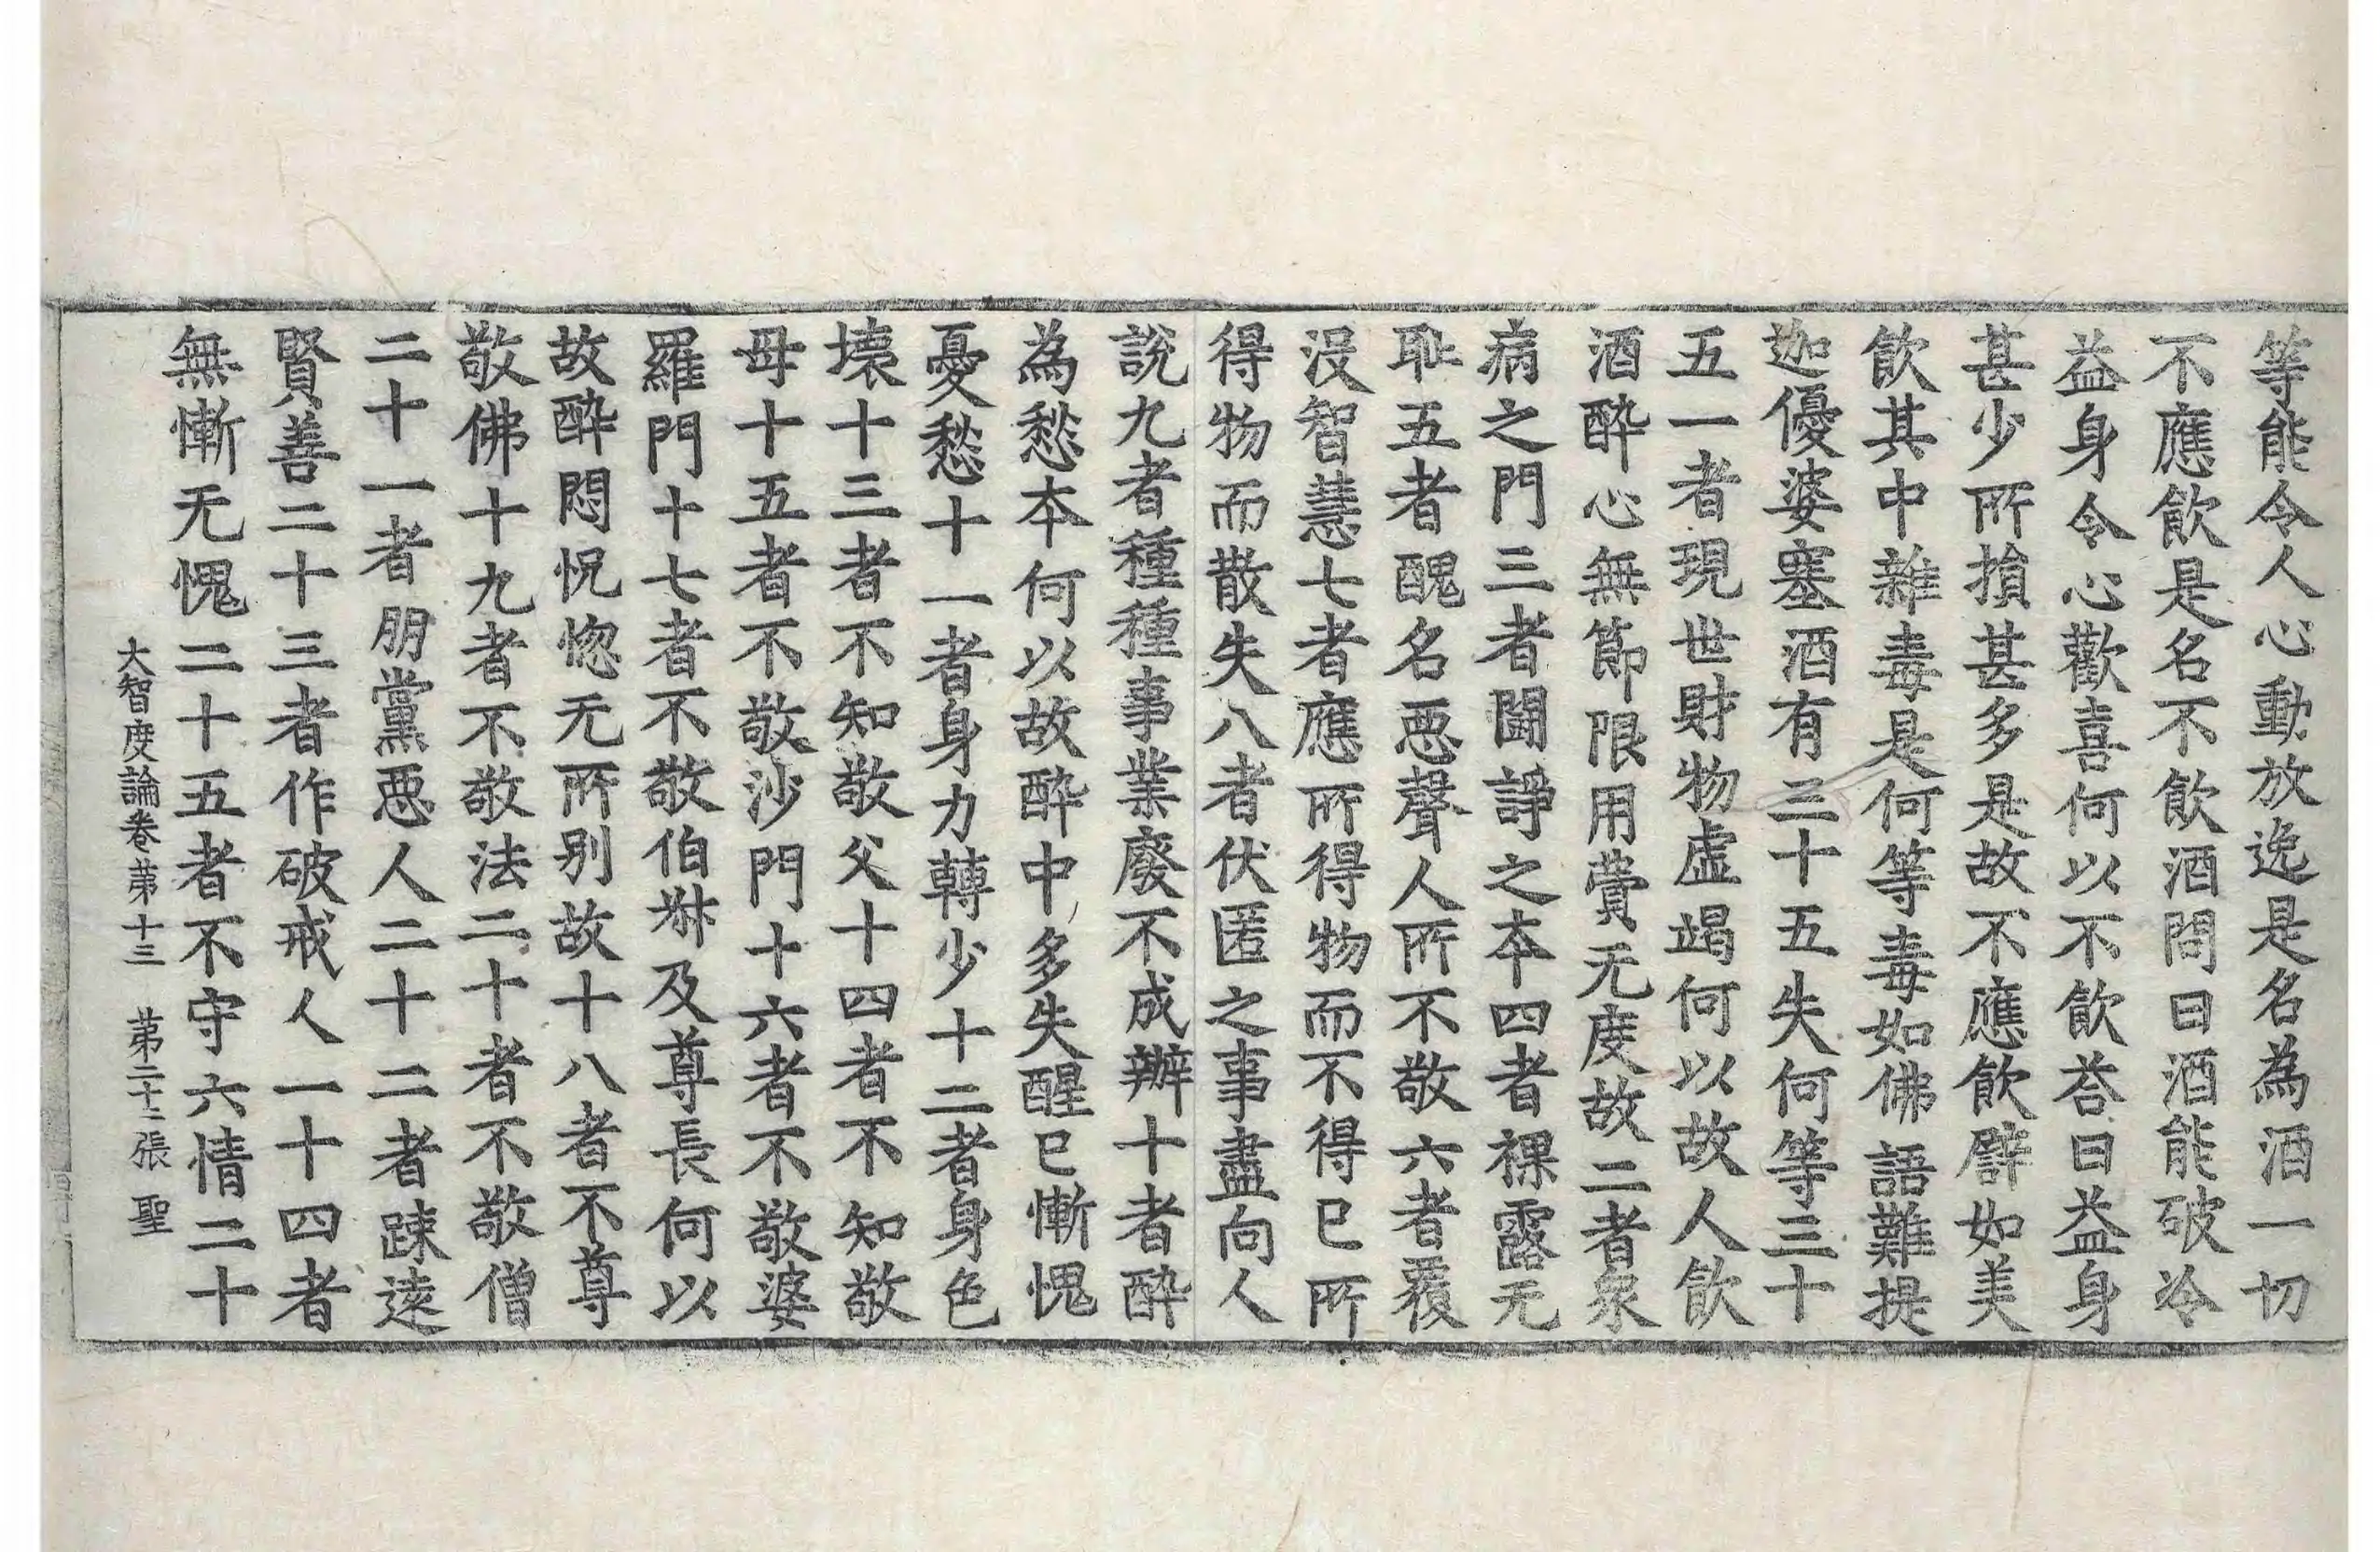 等能令人心動放逸是名為酒一切
不應飲是名不飲酒問曰酒能破冷
益身令心歡喜何以不飲荅曰益身
甚少所損甚多是故不應飲譬如美
飲其中雜毒是何等毒如佛語難提
迦優婆塞酒有三十五失何等三十
五一者現世財物虛竭何以故人飲
酒醉心無節限用費无度故二者衆
病之門三者鬪諍之本四者裸露无
耻五者醜名惡聲人所不敬六者覆
没智慧七者應所得物而不得已所
得物而散失八者伏匿之事盡向人
說九者種種事業廢不成辦十者醉
為愁本何以故醉中多失醒已慚愧
憂愁十一者身力轉少十二者身色
壞十三者不知敬父十四者不知敬
母十五者不敬沙門十六者不敬婆
羅門十七者不敬伯叔及尊長何以
故醉悶怳惚无所別故十八者不尊
敬佛十九者不敬法二十者不敬僧
二十一者朋黨惡人二十二者踈遠
賢善二十三者作破戒人二十四者
無慚无愧二十五者不守六情二十
大智度論卷苐十三 苐二十二張 聖